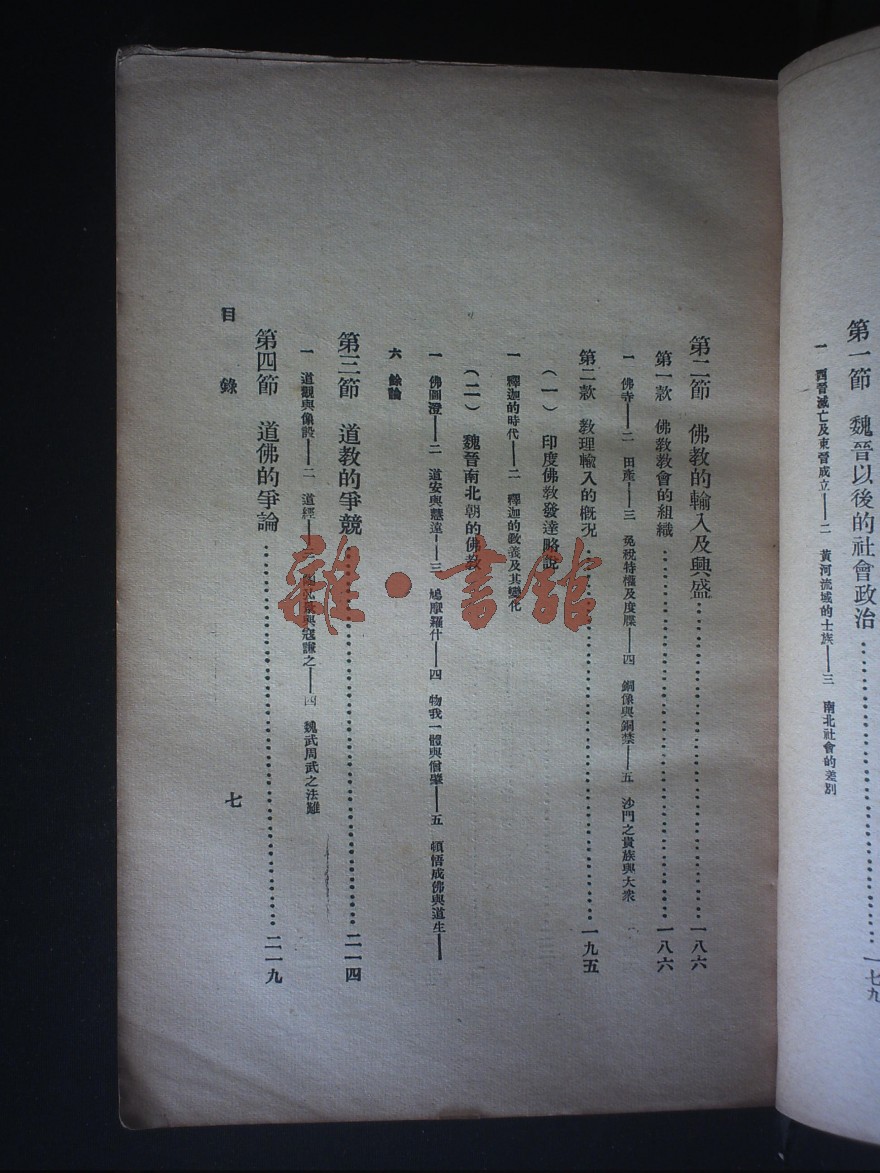 第一節 魏晉以後的社會政治……一七九
一 西晉滅亡及東晉成立——二 黃河流域的士族——三 南北社會的差別
第二節 佛教的輸入及興盛……一八六
第一款 佛教教會的組織……一八六
一 佛寺——二 田產——三 免稅特權及度牒——四 銅像與銅禁——五 沙門之貴族與大衆
第二款 教理輸入的槪況……一九五
（一） 印度佛教發達略說
一 釋迦的時代——二 釋迦的敎義及其變化
（二） 魏晉南北朝的佛教
一 佛圖澄——二 道安與慧遠——三 鳩摩羅什——四 物我一體與僧肇——五 頓悟成佛與道生——
六 餘論
第三節 道教的爭競……二一四
一 道觀與像設——二 道經——三 陶弘景與寇謙之——四 魏武周武之法難
第四節 道佛的爭論……二一九
目錄
七
雜·書館